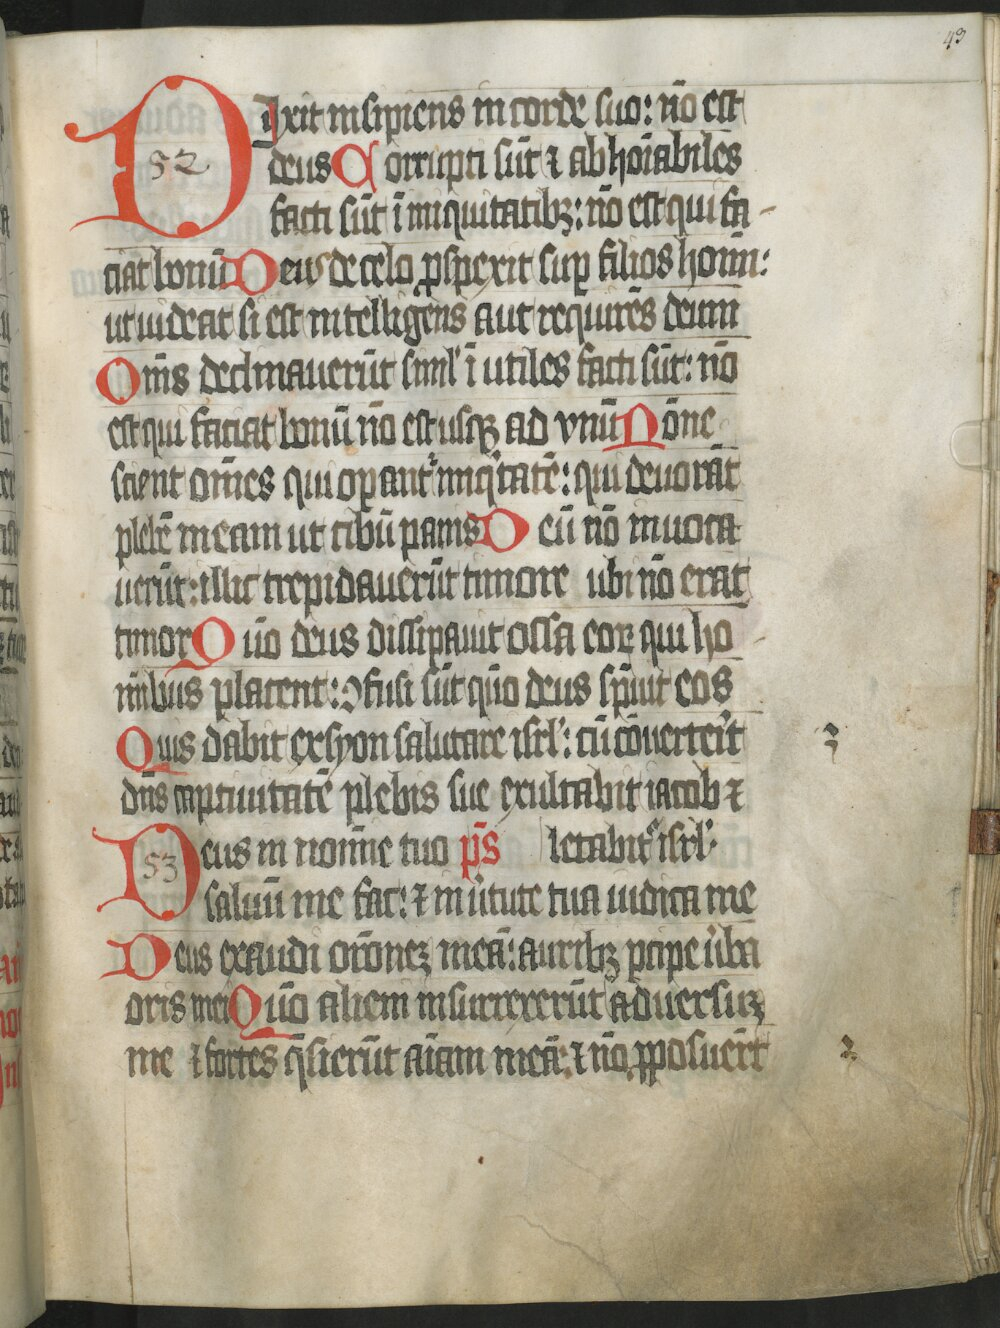 43
Dixit insipiens in corde suo: nō est
52
deus Corrupti sūt ⁊ abhoīabiles
facti sūt ī iniquitatibꝫ: nō est qui fa-
ciat bonū Deus de celo ꝓspexit suꝑ filios homī:
ut uideat si est intelligēs aut requirēs deum
Om̄s declinauerūt siml' ī utiles facti sūt: nō
est qui faciat bonū nō est usqꝫ ad vnū Nōne
scient om̄es qui oꝑant' iniq'tatē: qui deuorāt
plebē meam ut cibū panis Deū nō inuoca
uerūt: illic trepidauerūt timore ubi nō erat
timor Qūo deus dissipauit ossa eoꝝ qui ho
mībus placent: ꝯfusi sūt qūo deus sp̄uit eos
Quis dabit ex syon salutare isrl': cū cōuerterit
dn̄s captiuitatē plebis sue exultabit iacob ⁊
Deus in nomīe tuo p̄s letabit' isrl'
53
saluū me fac: ⁊ in ūtute tua iudica me
Deus exaudi orōneꝫ meā: auribꝫ ꝑcipe ūba
oris mei Qūo alieni insurrexerūt aduersuꝫ
me ⁊ fortes q̄sierūt aīam meā: ⁊ nō ꝓposuerūt